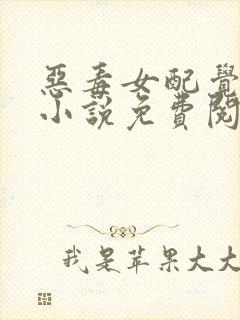 惡毒女配覺
小說免費閱
我是苹果大大